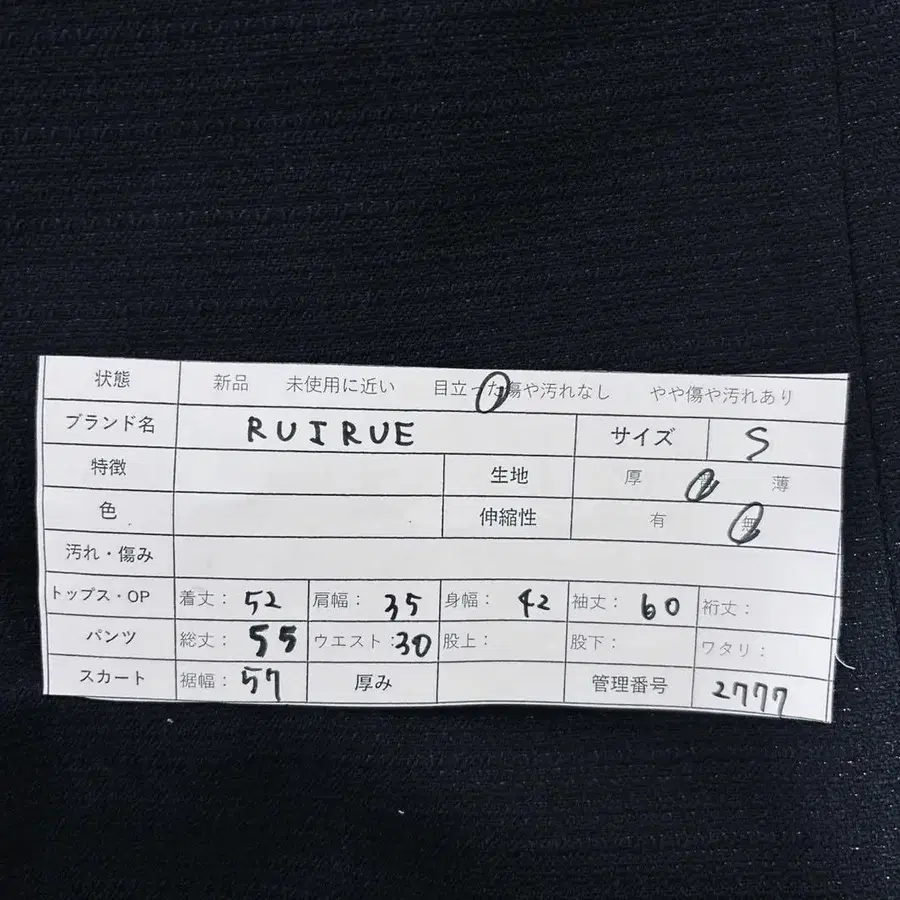 状態 新品 未使用に近い 目立った傷や汚れなし やや傷や汚れあり
ブランド名 RUIRUE サイズ S
特徴 生地 厚 薄
色 伸縮性 有 無
汚れ・傷み
トップス・OP 着丈: 52 肩幅: 35 身幅: 42 袖丈: 60 裄丈:
パンツ 総丈: 55 ウエスト:30 股上: 股下: ワタリ:
スカート 裾幅: 57 厚み 管理番号 2777